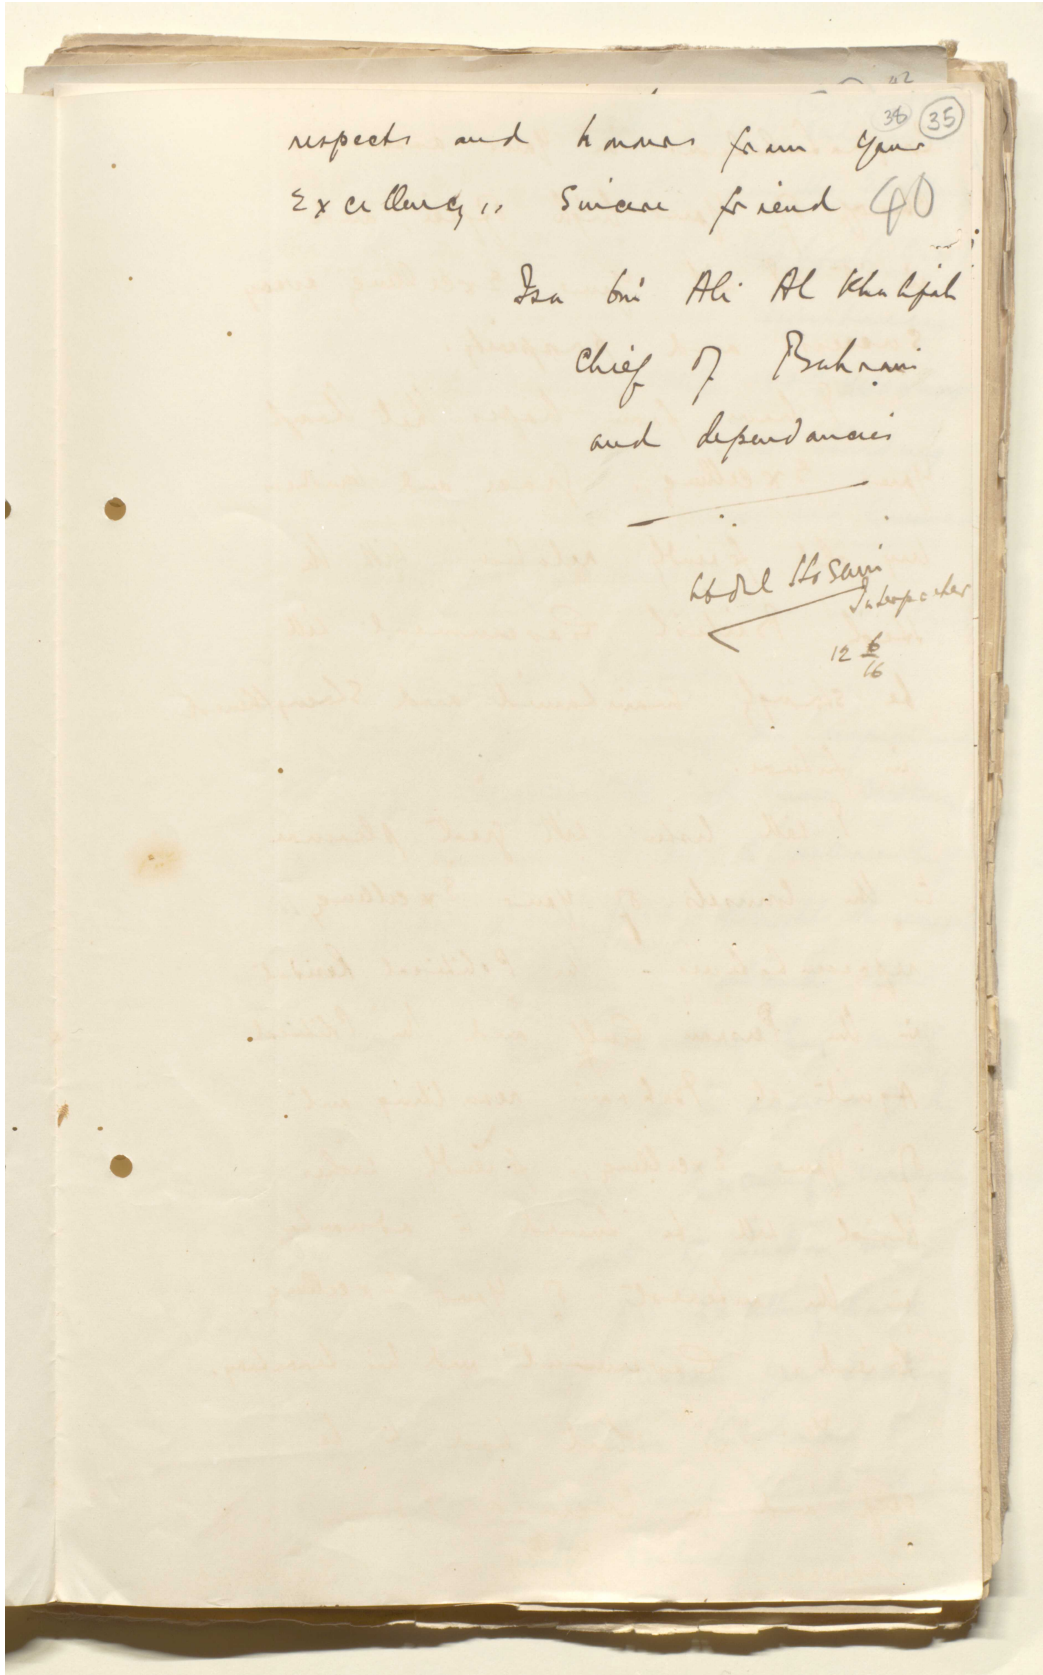 42
38 35
respects and honours from your
Excellency,, Sincere friend 40
Isa bin Ali Al Khalifah
Chief of Bahrain
and dependancies
Abdul Hosain
Interpreter
12 6
16